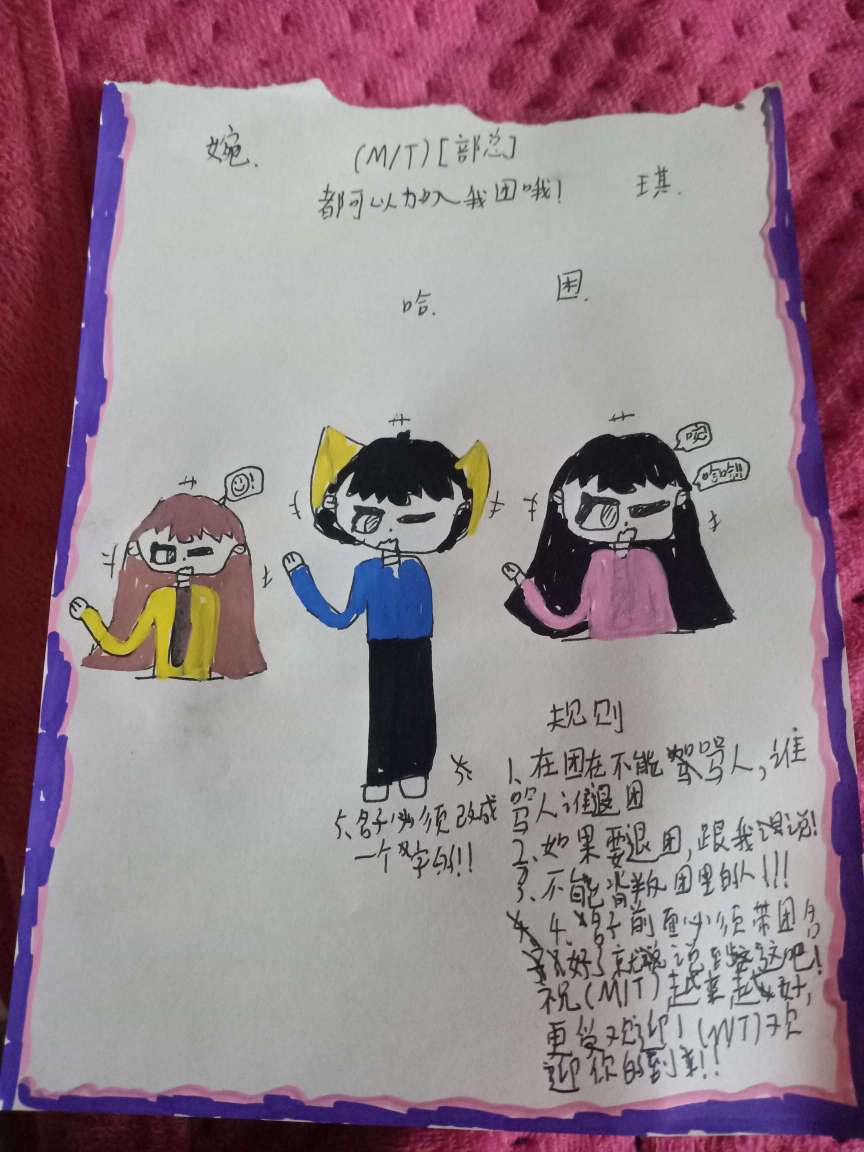 婉.
(M/T)[部总]
都可以加入我团哦!
琪.
哈.
困.
哈哈!!!
规则
1、在团在不能骂人,谁
骂人谁退团
2、如果要退团,跟我说!
3、不能背叛团里的人!!!
4、名子前面必须带团名
好了就说到这吧!
祝(M/T)越来越好,
更受欢迎!(M/T)欢
迎你的到来!!
5、名子必须改成
一个字的!!